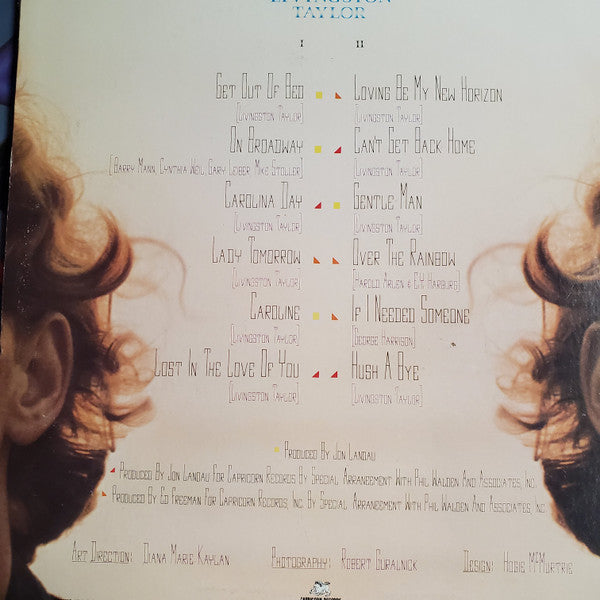 LIVINGSTON
TAYLOR
I II
Get Out Of Bed Loving Be My New Horizon
[Livingston Taylor] [Livingston Taylor]
On Broadway Can't Get Back Home
[Barry Mann, Cynthia Weil, Gary Leiber Mike Stoller] [Livingston Taylor]
Carolina Day Gentle Man
[Livingston Taylor] [Livingston Taylor]
Lady Tomorrow Over The Rainbow
[Livingston Taylor] [Harold Arlen & E.Y. Harburg]
Caroline If I Needed Someone
[Livingston Taylor] [George Harrison]
Lost In The Love Of You Hush A Bye
[Livingston Taylor] [Livingston Taylor]
Produced By Jon Landau
Produced By Jon Landau For Capricorn Records By Special Arrangement With Phil Walden And Associates, Inc.
Produced By Ed Freeman For Capricorn Records, Inc. By Special Arrangement With Phil Walden And Associates, Inc.
Art Direction: Diana Marie Kaylan Photography: Robert Guralnick Design: Hogie McMurtrie
CAPRICORN RECORDS